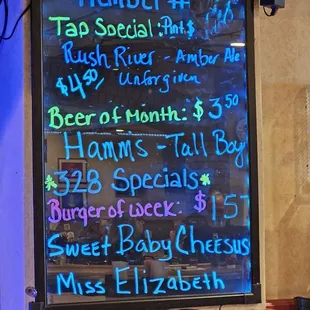 Number #
Tap Special: Pint $
Rush River - Amber Ale
$4.50 Unforgiven
Beer of Month: $3.50
Hamms - Tall Boy
*328 Specials*
Burger of week: $15
Sweet Baby Cheesus
Miss Elizabeth